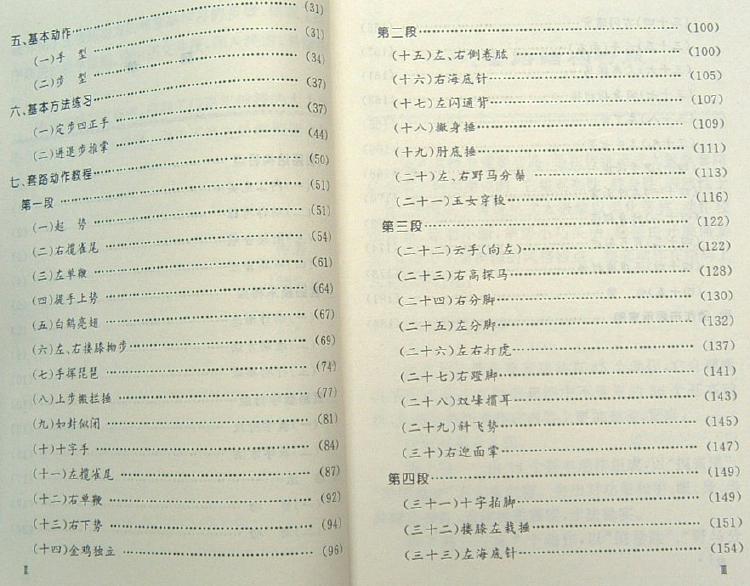 (31)
五、基本动作 (31)
(一)手 型 (34)
(二)步 型 (37)
六、基本方法练习 (37)
(一)定步四正手 (44)
(二)进退步推掌 (50)
七、套路动作教程 (51)
第一段 (51)
(一)起 势 (54)
(二)右揽雀尾 (61)
(三)左单鞭 (64)
(四)提手上势 (67)
(五)白鹤亮翅 (69)
(六)左、右搂膝拗步 (74)
(七)手挥琵琶 (77)
(八)上步搬拦捶 (81)
(九)如封似闭 (84)
(十)十字手 (87)
(十一)左揽雀尾 (92)
(十二)右单鞭 (94)
(十三)右下势 (96)
(十四)金鸡独立
Ⅱ
第二段 (100)
(十五)左、右倒卷肱 (100)
(十六)右海底针 (105)
(十七)左闪通背 (107)
(十八)撇身捶 (109)
(十九)肘底捶 (111)
(二十)左、右野马分鬃 (113)
(二十一)玉女穿梭 (116)
第三段 (122)
(二十二)云手(向左) (122)
(二十三)右高探马 (128)
(二十四)右分脚 (130)
(二十五)左分脚 (132)
(二十六)左右打虎 (137)
(二十七)右蹬脚 (141)
(二十八)双峰掼耳 (143)
(二十九)斜飞势 (145)
(三十)右迎面掌 (147)
第四段 (149)
(三十一)十字拍脚 (149)
(三十二)搂膝左栽捶 (151)
(三十三)左海底针 (154)
Ⅲ